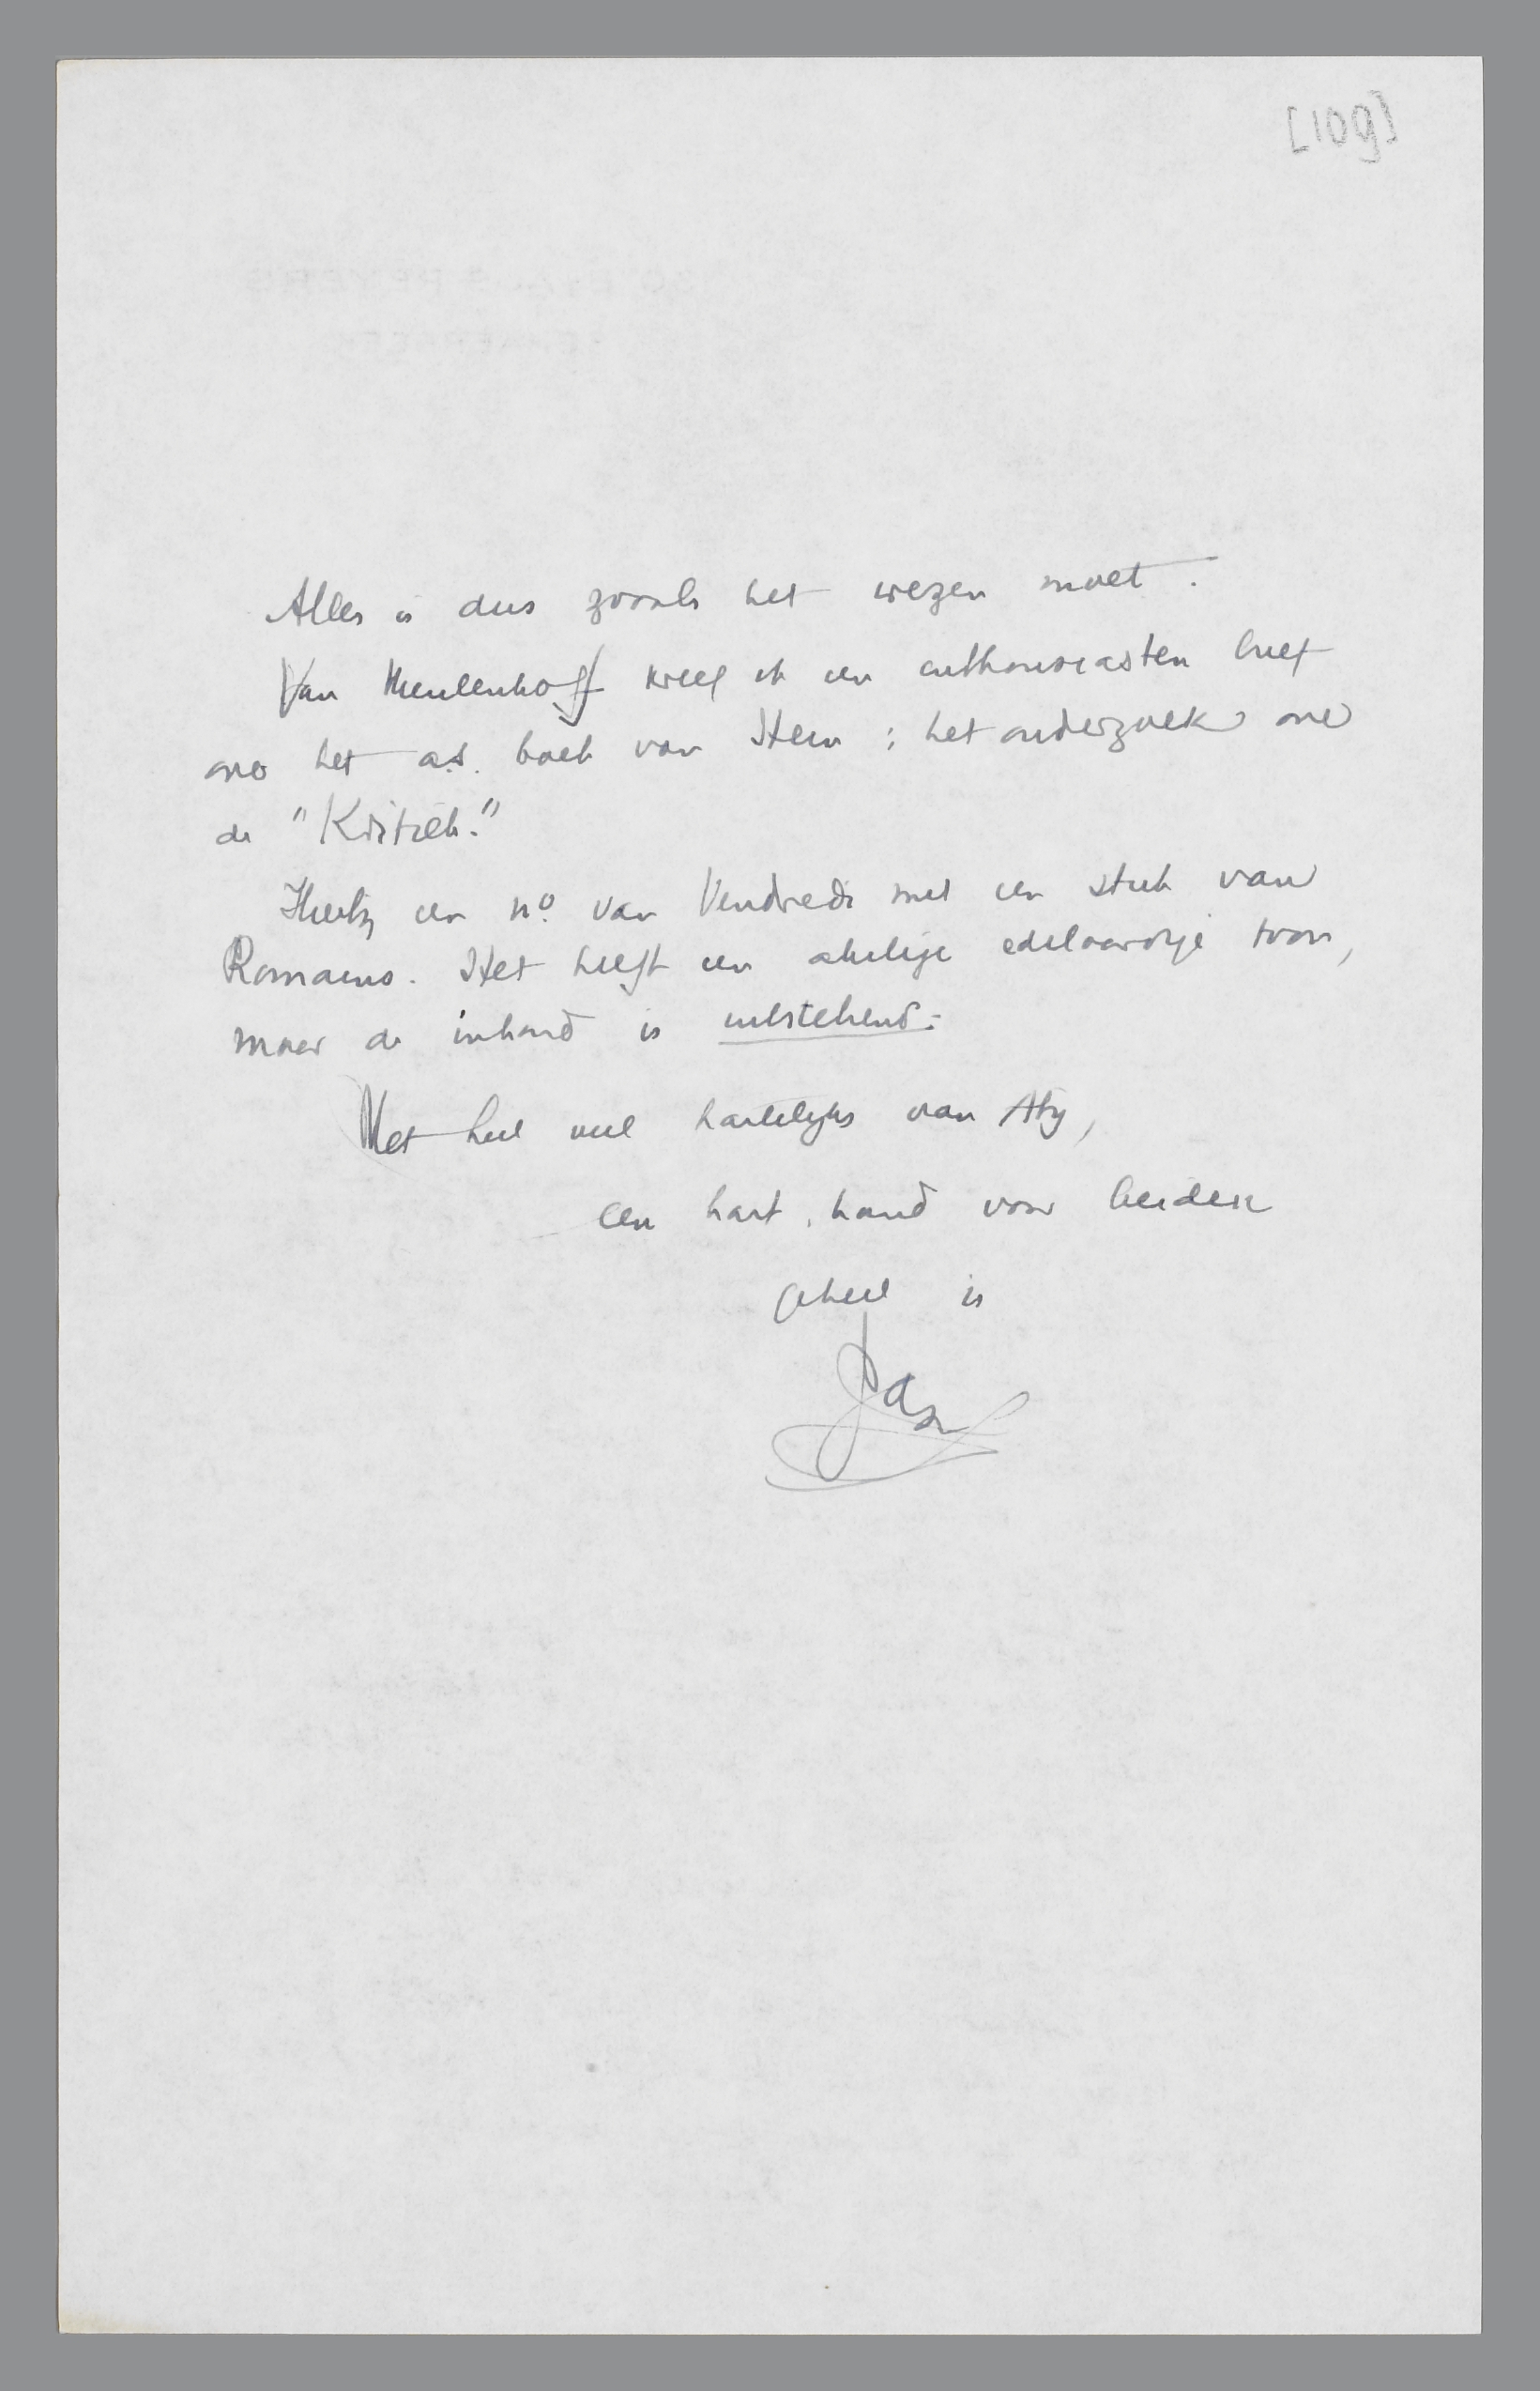 [109]
Alles is dus zooals het wezen moet.
Van Meulenhoff kreeg ik een enthousiasten brief
over het a.s. boek van Stein; het onderzoek over
de "Kritiek."
Hierbij een no. van Vendredi met een stuk van
Romains. Het heeft een akelige edelaardige toon,
maar de inhoud is uitstekend.
Met heel veel hartelijks van Aty,
een hart. hand voor beiden
geheel is
Jan